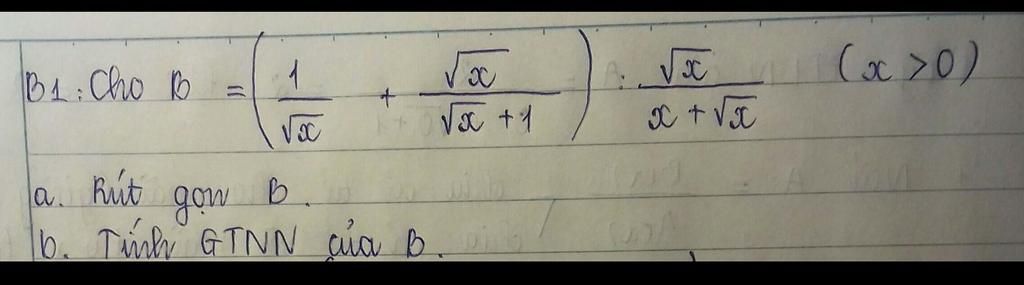 B1: Cho B = (1/√x + √x/(√x + 1)) : √x/(x + √x) (x > 0)
a. Rút gọn B.
b. Tính GTNN của B.